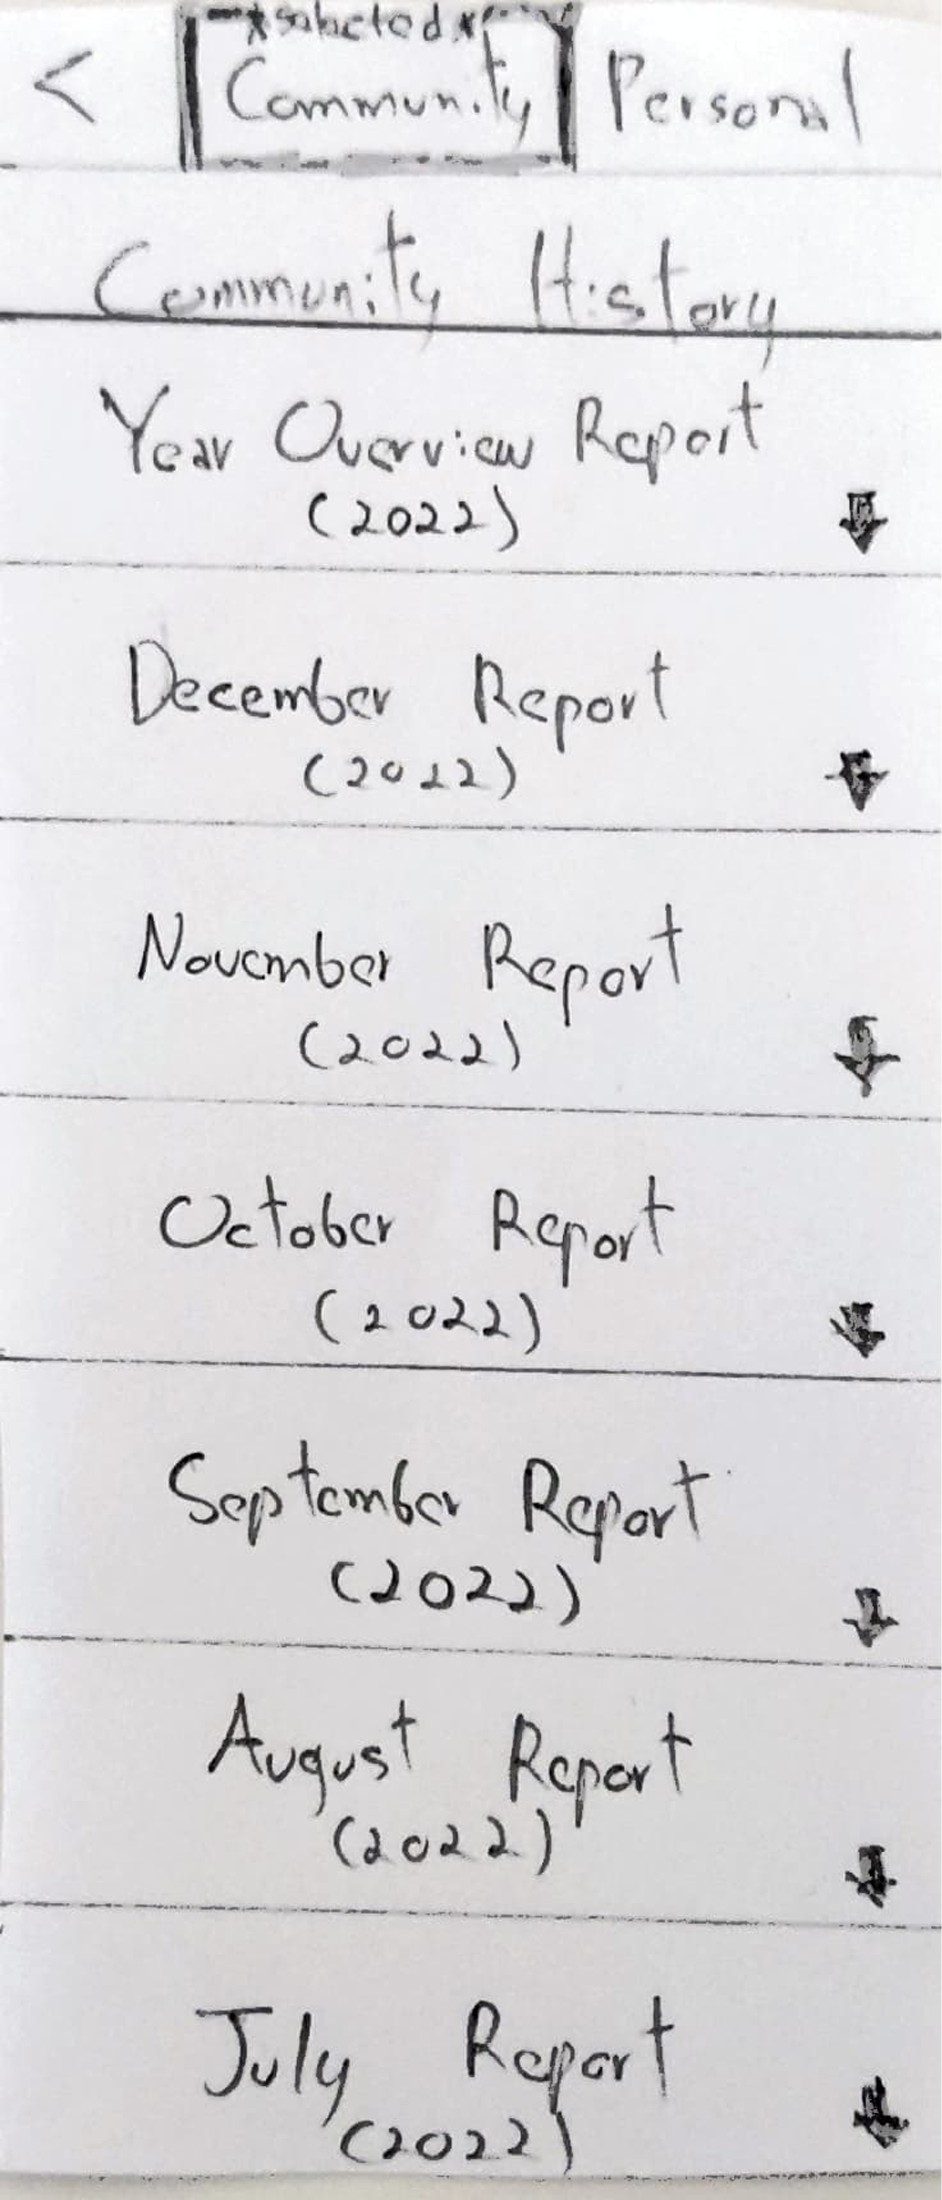 *selected*
< Community Personal
Community History
Year Overview Report
(2022)
December Report
(2022)
November Report
(2022)
October Report
(2022)
September Report
(2022)
August Report
(2022)
July Report
(2022)